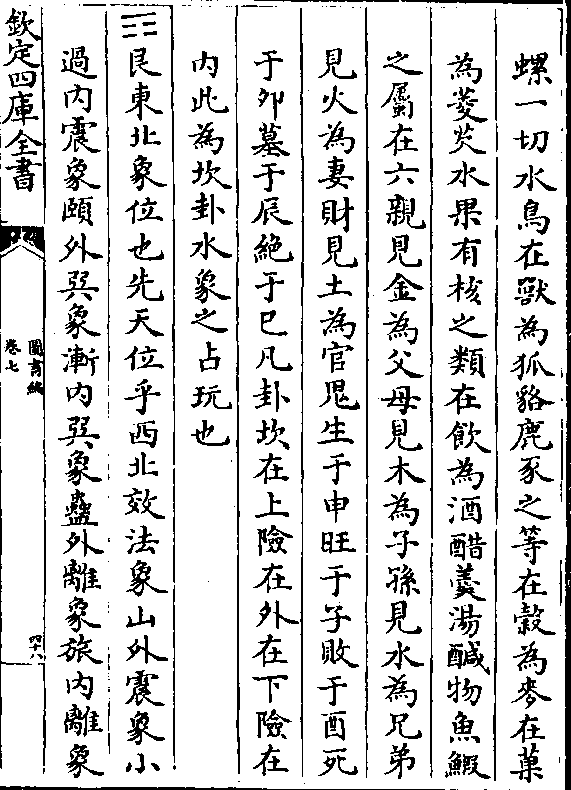 螺一切水鳥在獸為狐貉鹿豕之等在穀為麥在菓
為菱芡水果有核之類在飲為酒醋羹湯醎物魚鰕
之屬在六親見金為父母見木為子孫見水為兄弟
見火為妻財見土為官鬼生于申旺于子敗于酉死
于卯墓于辰絶于巳凡卦坎在上險在外在下險在
内此為坎卦水象之占玩也
☶艮東北象位也先天位乎西北效法象山外震象小
過内震象頤外巽象漸内巽象蠱外離象旅内離象
欽定四庫全書
圖書編
卷七
四十八